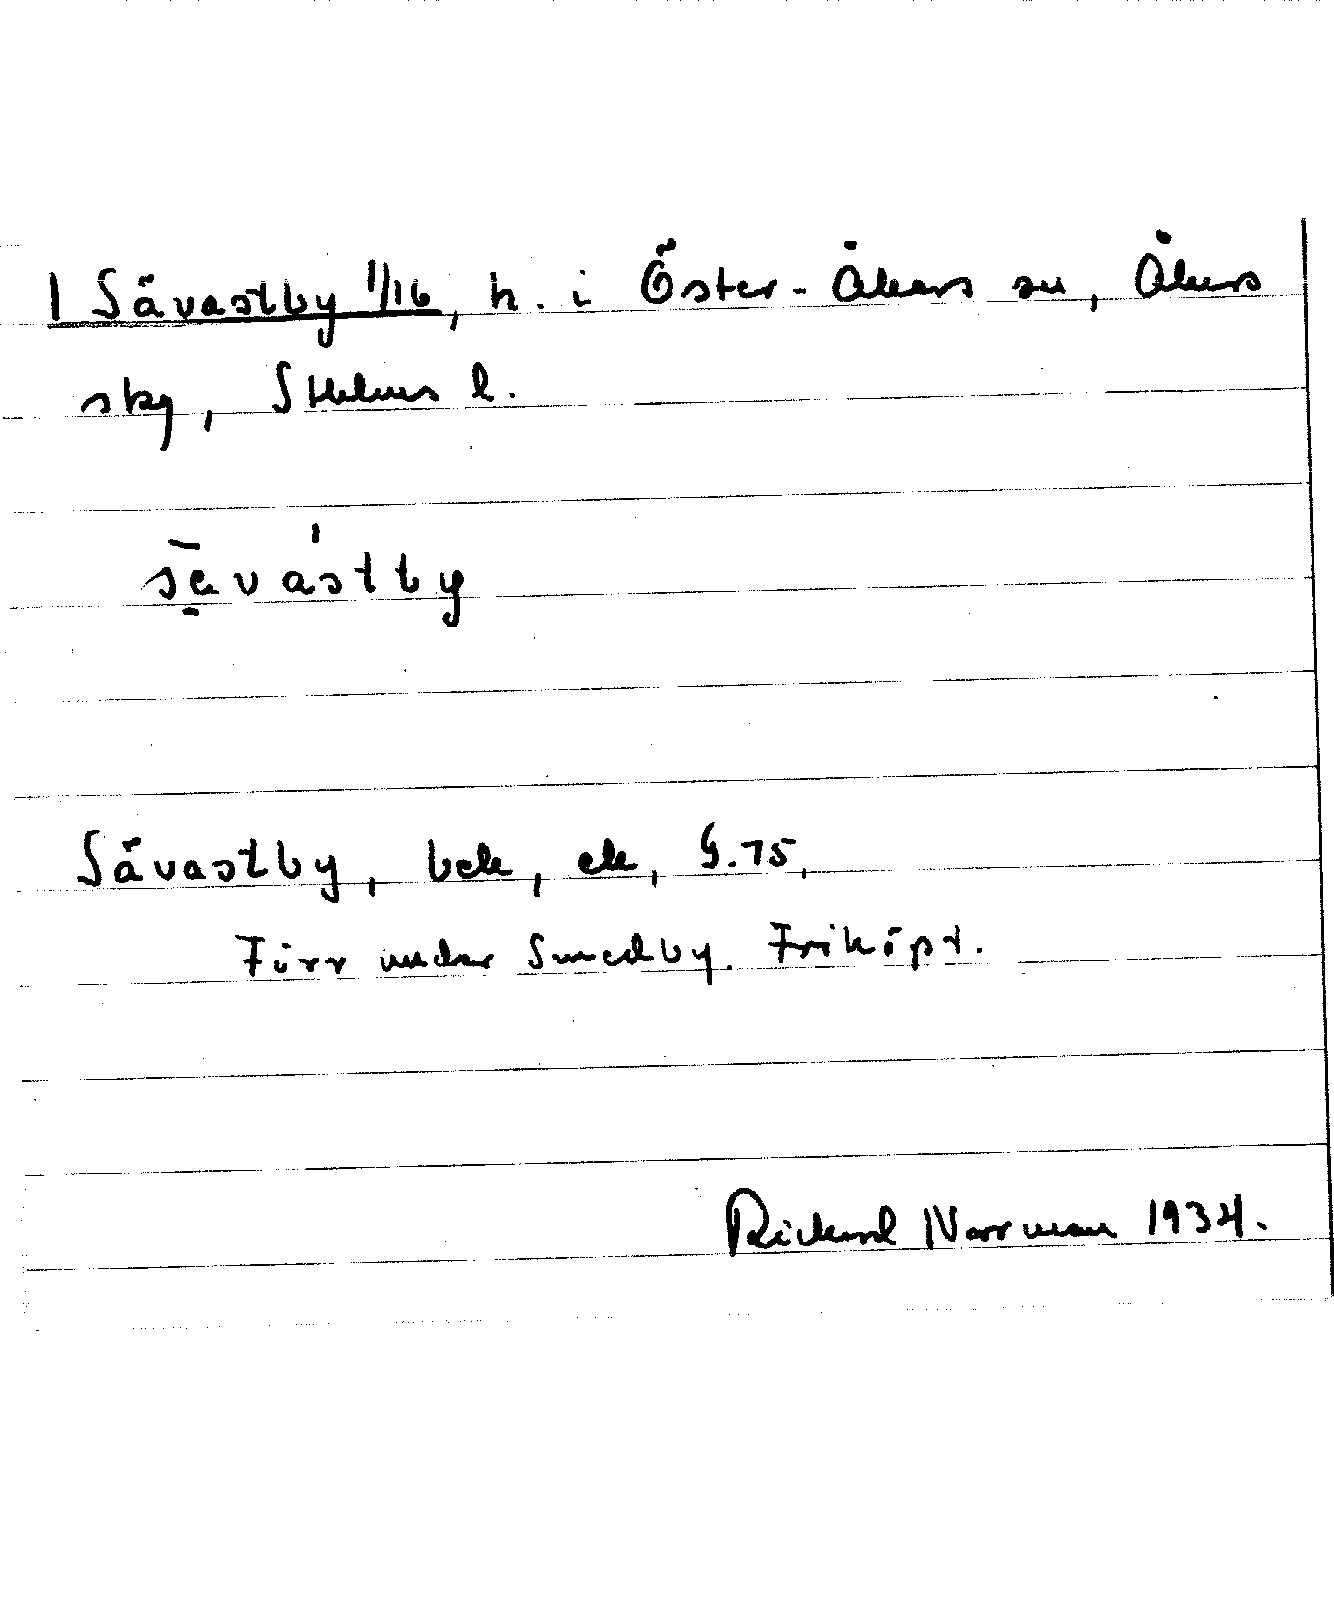 1 Sävastby 1/16, h. i Öster-Åkers sn, Åkers
skg, Sthlms l.
sävástby
Sävastby, bek, ek, G.75,
Förr under Smedby. Friköpt.
Rickard Norrman 1934.